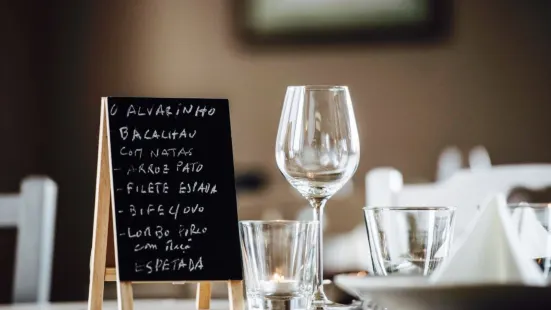 O ALVARINHO
BACALHAU
COM NATAS
- ARROZ PATO
- FILETE ESPADA
- BIFE C/ OVO
- LOMBO PORCO
COM
ESPETADA